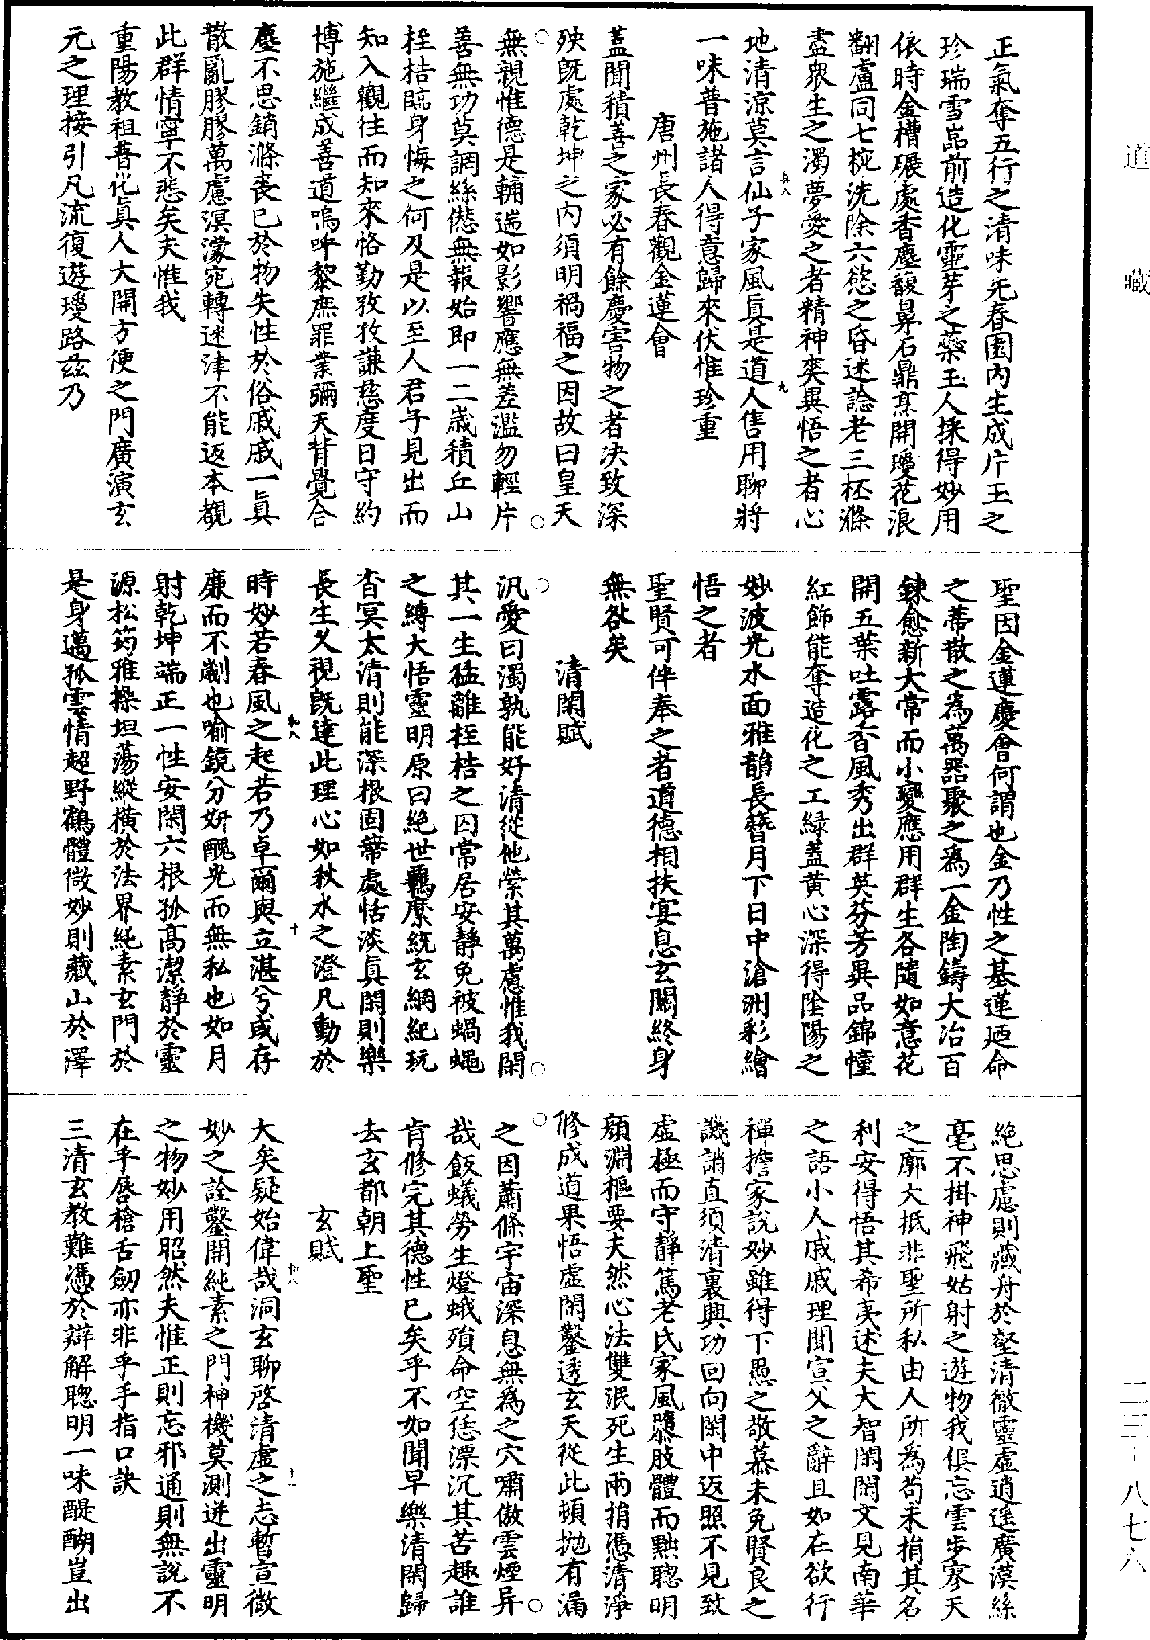 正氣奪五行之清味先春園內生成片玉之
珍瑞雪嵓前造化靈芽之蘂玉人採得妙用
依時金槽碾處香塵馥鼻石鼎烹開瓊花浪
翻盧同七椀洗除六慾之昏迷諗老三柸滌
盡眾生之濁夢愛之者精神爽異悟之者心
地清涼莫言仙子家風真是道人售用聊將
一味普施諸人得意歸來伏惟珍重
唐州長春觀金蓮會
蓋聞積善之家必有餘慶害物之者決致深
殃既處乾坤之內須明禍福之因故曰皇天
無親惟德是輔遄如影響應無差濫勿輕片
善無功莫調絲僁無報始即一二歲積丘山
桎梏臨身悔之何及是以至人君子見出而
知入觀往而知來恪勤孜孜謙慈度日守約
博施繼成善道嗚呼黎庶罪業彌天背覺合
塵不思銷滌喪己於物失性於俗戚戚一真
散亂膠膠萬慮溟濛宛轉迷津不能返本覩
此群情寧不悲矣夫惟我
重陽教祖普化真人大開方便之門廣演玄
元之理接引凡流復遊瓊路茲乃
聖因金蓮慶會何謂也金乃性之基蓮廼命
之蒂散之為萬器聚之為一金陶鑄大冶百
鍊愈新大常而小變應用群生各隨如意花
開五葉吐露香風秀出群英芬芳異品錦幢
紅飾能奪造化之工綠蓋黃心深得陰陽之
妙波光水面雅韻長簪月下日中滄洲彩繪
悟之者
聖賢可伴奉之者道德相扶宴息玄關終身
無咎矣
清閑賦
汎愛曰濁孰能好清從他縈其萬慮惟我閑
其一生猛離桎梏之囚常居安靜免被蝸蠅
之縛大悟靈明原曰絕世羈縻統玄綱紀玩
杳冥太清則能深根固蒂處恬淡真閑則樂
長生久視既達此理心如秋水之澄凡動於
時妙若春風之起若乃卓爾與立湛兮或存
廉而不劌也喻鏡分妍醜光而無私也如月
射乾坤端正一性安閑六根孤高潔靜於靈
源松筠雅操坦蕩縱橫於法界純素玄門於
是身邁孤雲情超野鶴體微妙則藏山於澤
絕思慮則藏舟於壑清徹靈虛逍遙廣漠絲
毫不掛神飛姑射之遊物我俱忘雲步寥天
之廓大抵非聖所私由人所為苟未捐其名
利安得悟其希夷述夫大智閑閑文見南華
之語小人戚戚理聞宣父之辭且如在欲行
禪擔家說妙雖得下愚之敬慕未免賢良之
譏誚直須清裏興功回向閑中返照不見致
虛極而守靜篤老氏家風隳肢體而黜聰明
顏淵樞要夫然心法雙泯死生兩捐憑清淨
修成道果悟虛閑鑿透玄天從此頓拋有漏
之因蕭條宇宙深息無為之穴嘯傲雲煙異
哉飯蟻勞生燈蛾殞命空恁漂沉其苦趣誰
肯修完其德性已矣乎不如聞早樂清閑歸
去玄都朝上聖
玄賦
大矣疑始偉哉洞玄聊啓清虛之志暫宣微
妙之詮鑿開純素之門神機莫測迸出靈明
之物妙用昭然夫惟正則忘邪通則無說不
在乎唇槍舌劒亦非乎手指口訣
三清玄教難憑於辯解聰明一味醍醐豈出
道藏
二三—八七六